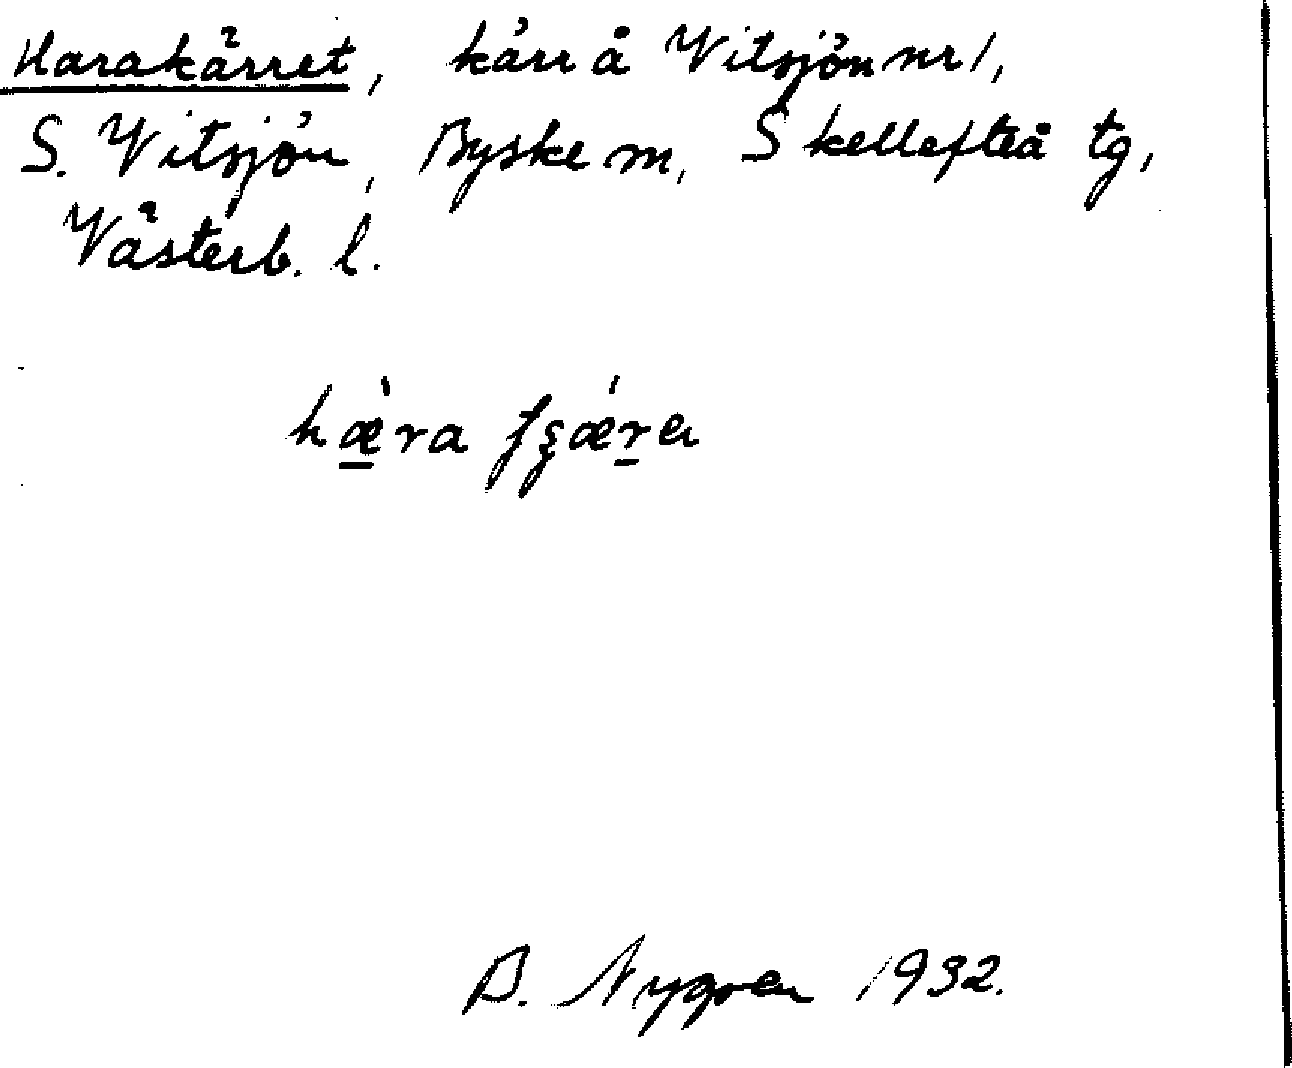 Harakärret, kärr å Vitsjön nr 1,
S. Vitsjön, Byske m, Skellefteå tg,
Västerb. l.
B. Nygren 1932.